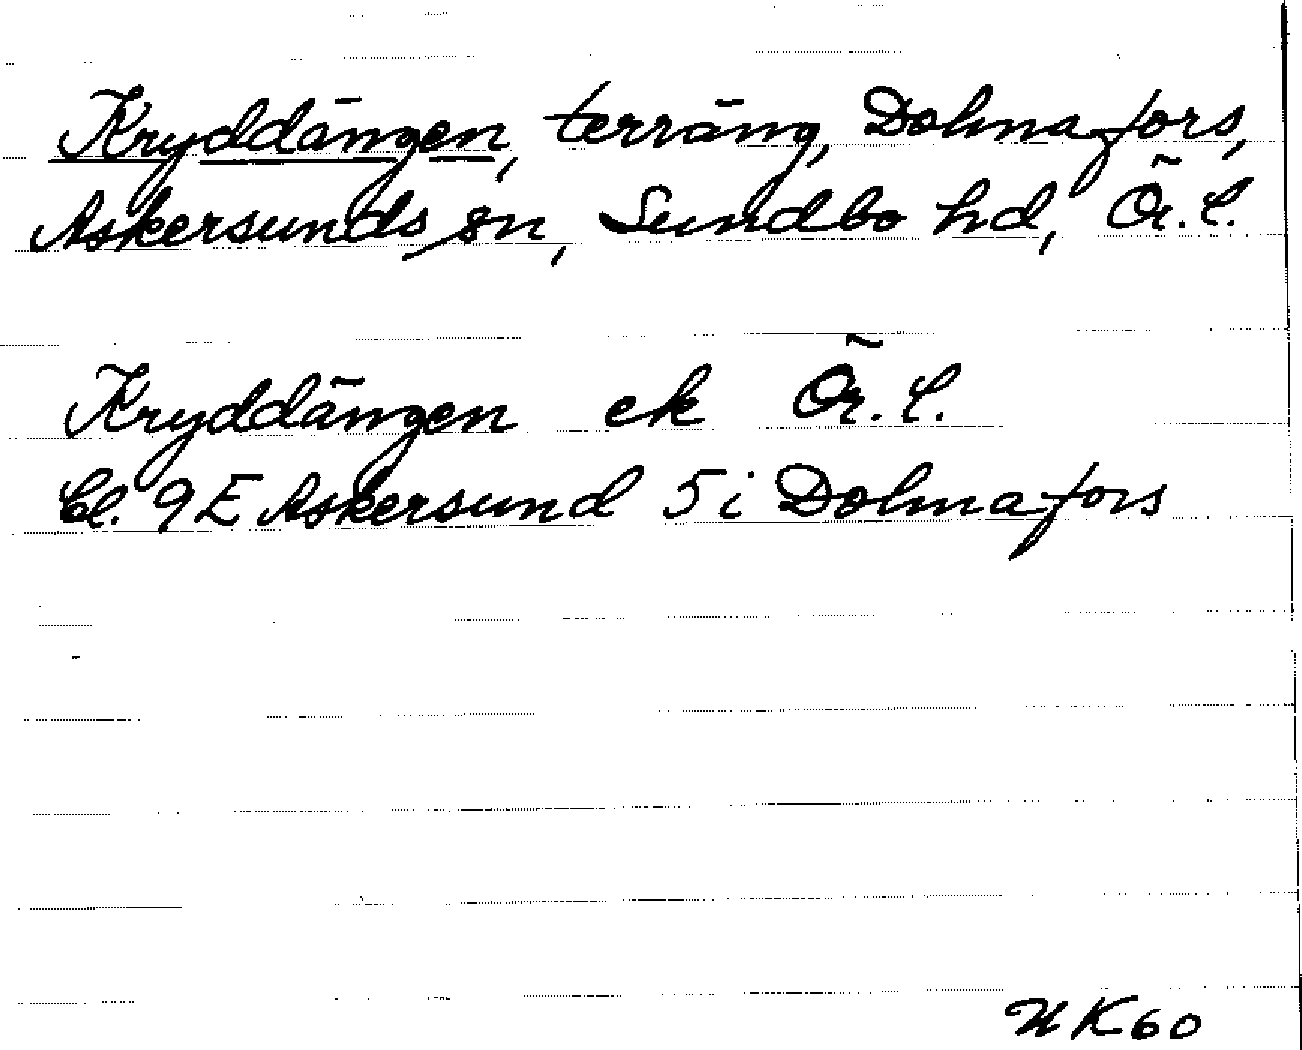 Kryddängen, terräng, Dohnafors,
Askersunds sn, Sundbo hd, Ör. l.
Kryddängen ek Ör. l.
bl. 9E Askersund 5i Dohnafors
UK60